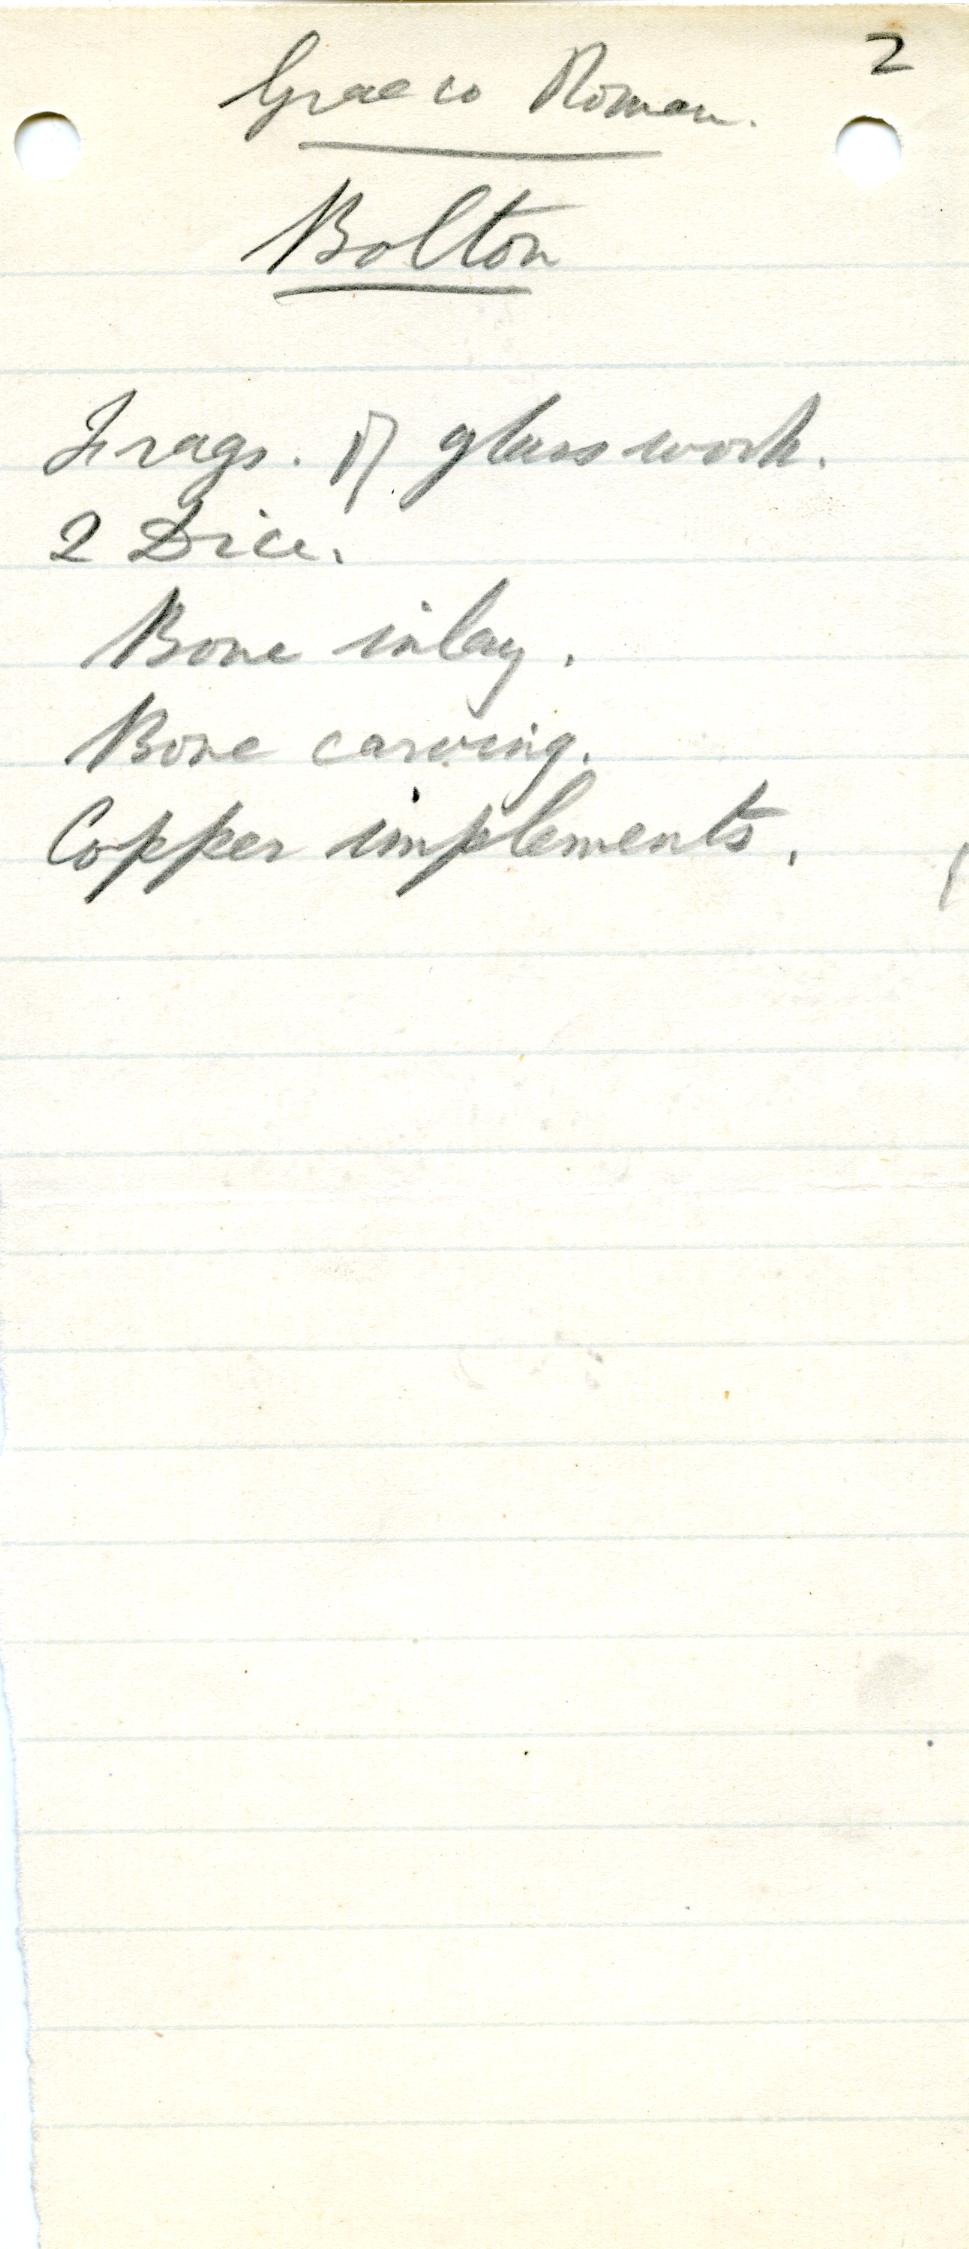 2
Graeco Roman.
Bolton
Frags. of glass work.
2 Dice.
Bone inlay.
Bone carving.
Copper implements.